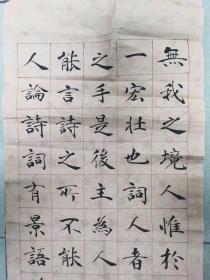 無我之境人惟於
一宏壯也詞人者
之手是後主為人
能言詩之所不能
人論詩詞有景語